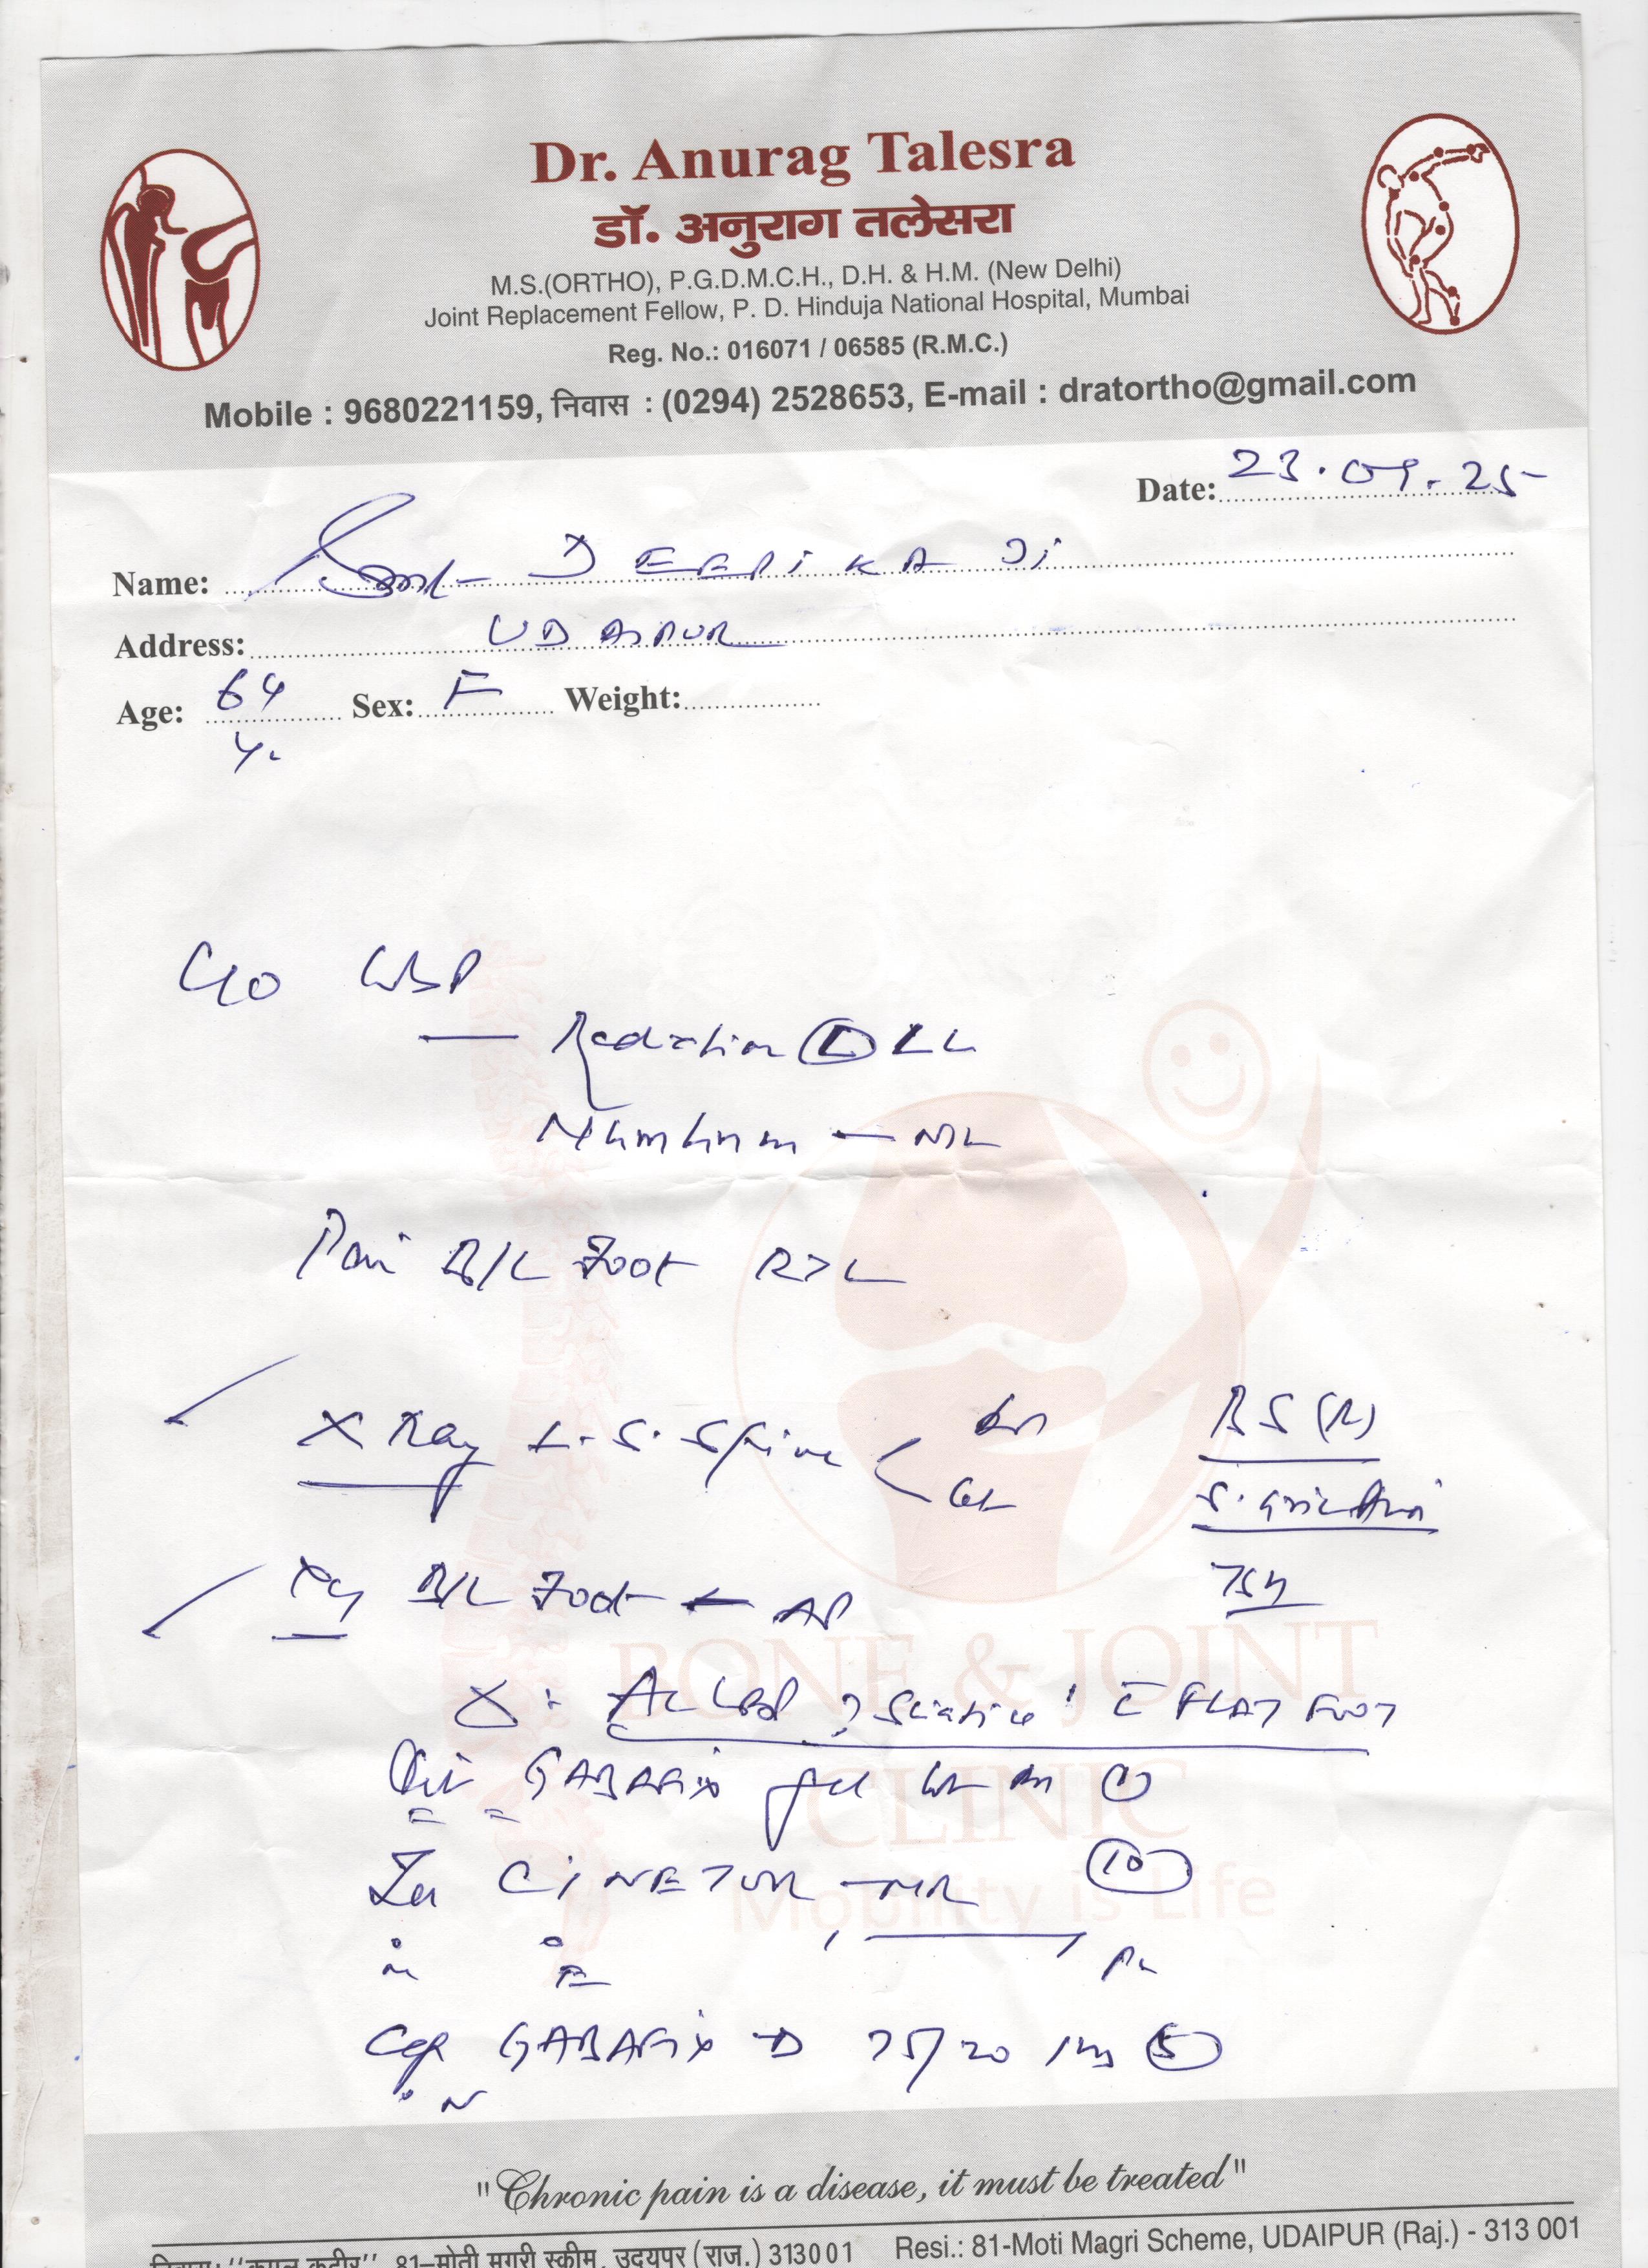 Dr. Anurag Talesra
डॉ. अनुराग तलेसरा
M.S.(ORTHO), P.G.D.M.C.H., D.H. & H.M. (New Delhi)
Joint Replacement Fellow, P. D. Hinduja National Hospital, Mumbai
Reg. No.: 016071 / 06585 (R.M.C.)
Mobile : 9680221159, निवास : (0294) 2528653, E-mail : dratortho@gmail.com
Date: 23.09.25
Name: DEEPIKA Ji
Address: UDAIPUR
Age: 64 Sex: F Weight:
Y.
C/o LBP
— Radiation (L) LL
Numbness — NIL
Pain B/L Foot R>L
X Ray L.S. Spine < AP
Lat
BS (R)
S.
B/L Foot AP
BONE & JOINT
CLINIC
Mobility is Life
Ac LBP ? Sciatica c FLAT FOOT
GABAFIX gel
CINETOR -MR (10)
Cap GABAFIX D 75/20 (5)
N
"Chronic pain is a disease, it must be treated"
निवास: "कमल कुटीर", 81-मोती मगरी स्कीम, उदयपुर (राज.) 313001 Resi.: 81-Moti Magri Scheme, UDAIPUR (Raj.) - 313 001